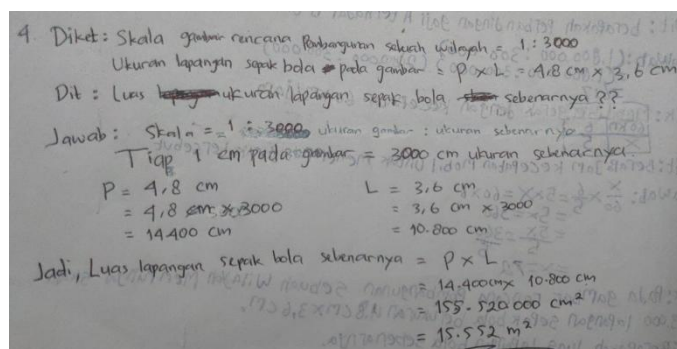 4 Diket: Skala gambar rencana Pembangunan sebuah wilayah = 1 : 3000
Ukuran lapangan sepak bola pada gambar = P x L = 4,8 cm x 3,6 cm
Dit : Luas ukuran lapangan sepak bola sebenarnya ??
Jawab : Skala = 1 : 3000 ukuran gambar : ukuran sebenarnya
Tiap 1 cm pada gambar = 3000 cm ukuran sebenarnya
P = 4,8 cm L = 3,6 cm
= 4,8 cm x 3000 = 3,6 cm x 3000
= 14400 cm = 10.800 cm
Jadi, Luas lapangan sepak bola sebenarnya = P x L
= 14.400 cm x 10.800 cm
= 155.520000 cm²
= 15.552 m²